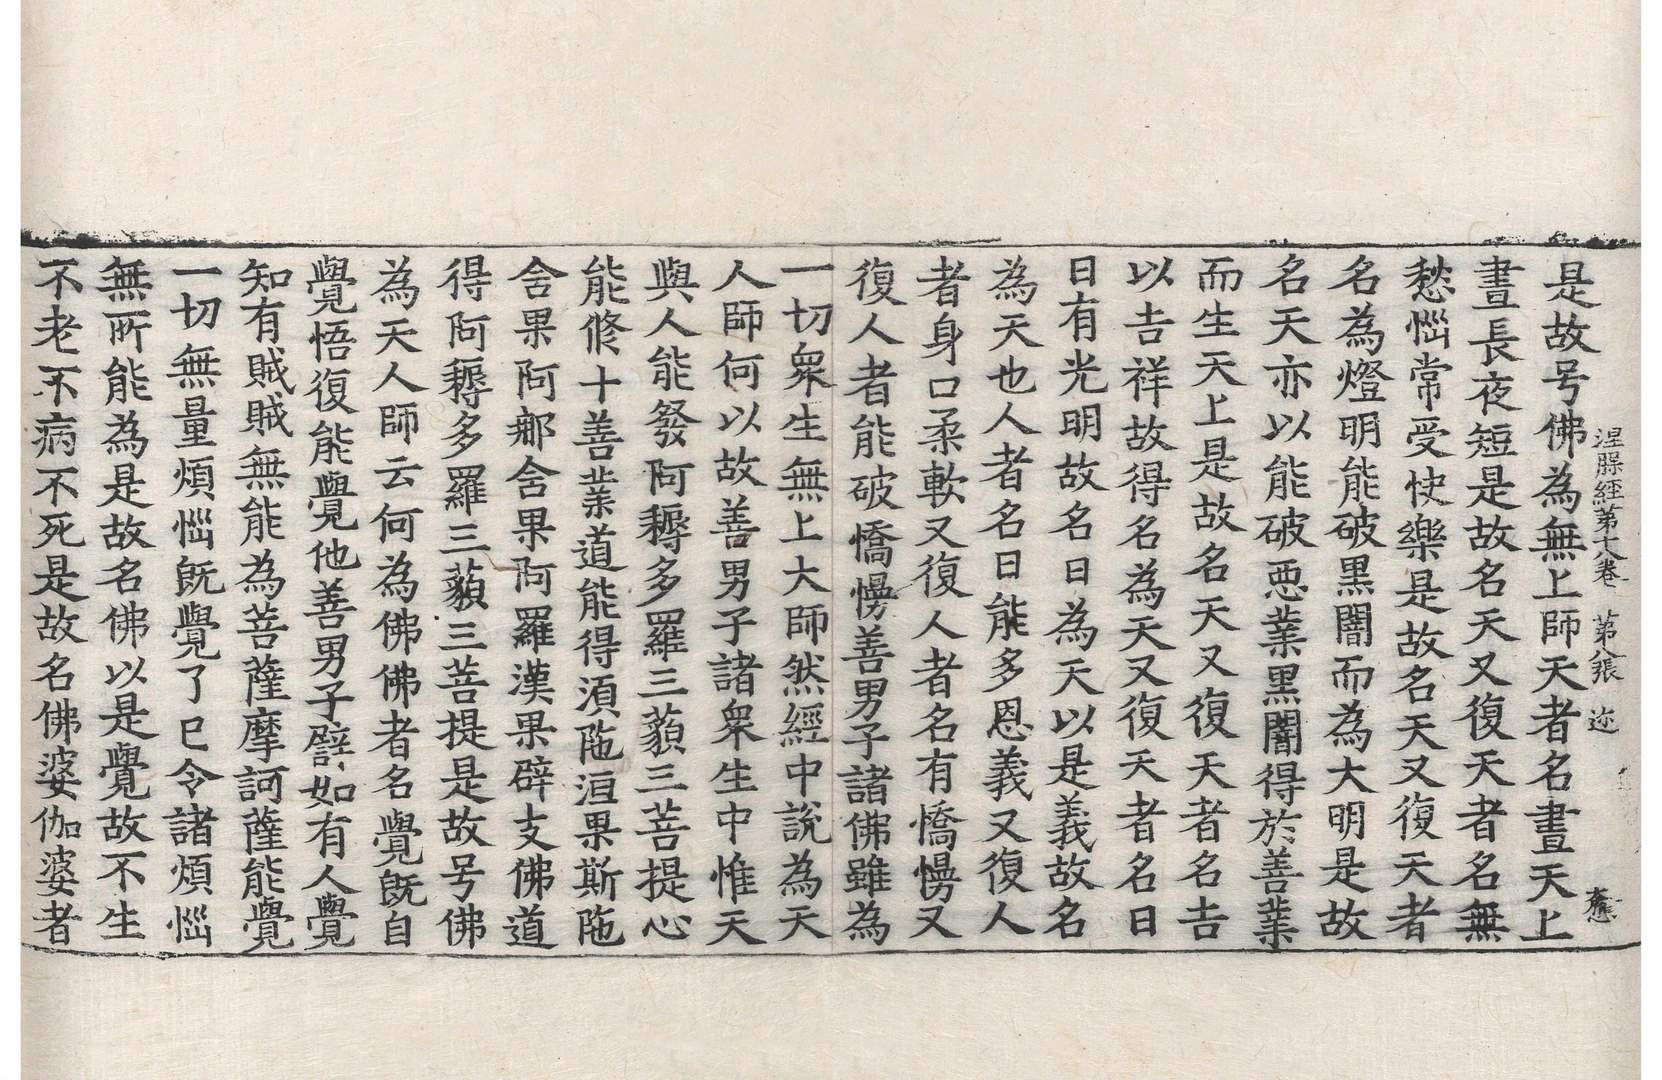 涅槃經第十八卷 第八張 迩
是故号佛為無上師天者名晝天上
晝長夜短是故名天又復天者名無
愁惱常受快樂是故名天又復天者
名為燈明能破黒闇而為大明是故
名天亦以能破惡業黒闇得於善業
而生天上是故名天又復天者名吉
以吉祥故得名為天又復天者名日
日有光明故名日為天以是義故名
為天也人者名曰能多恩義又復人
者身口柔軟又復人者名有憍慢又
復人者能破憍慢善男子諸佛雖為
一切衆生無上大師然經中說為天
人師何以故善男子諸衆生中惟天
與人能發阿耨多羅三藐三菩提心
能修十善業道能得湏陁洹果斯陁
含果阿那含果阿羅漢果辟支佛道
得阿耨多羅三藐三菩提是故号佛
為天人師云何為佛佛者名覺既自
覺悟復能覺他善男子譬如有人覺
知有賊賊無能為菩薩摩訶薩能覺
一切無量煩惱既覺了已令諸煩惱
無所能為是故名佛以是覺故不生
不老不病不死是故名佛婆伽婆者